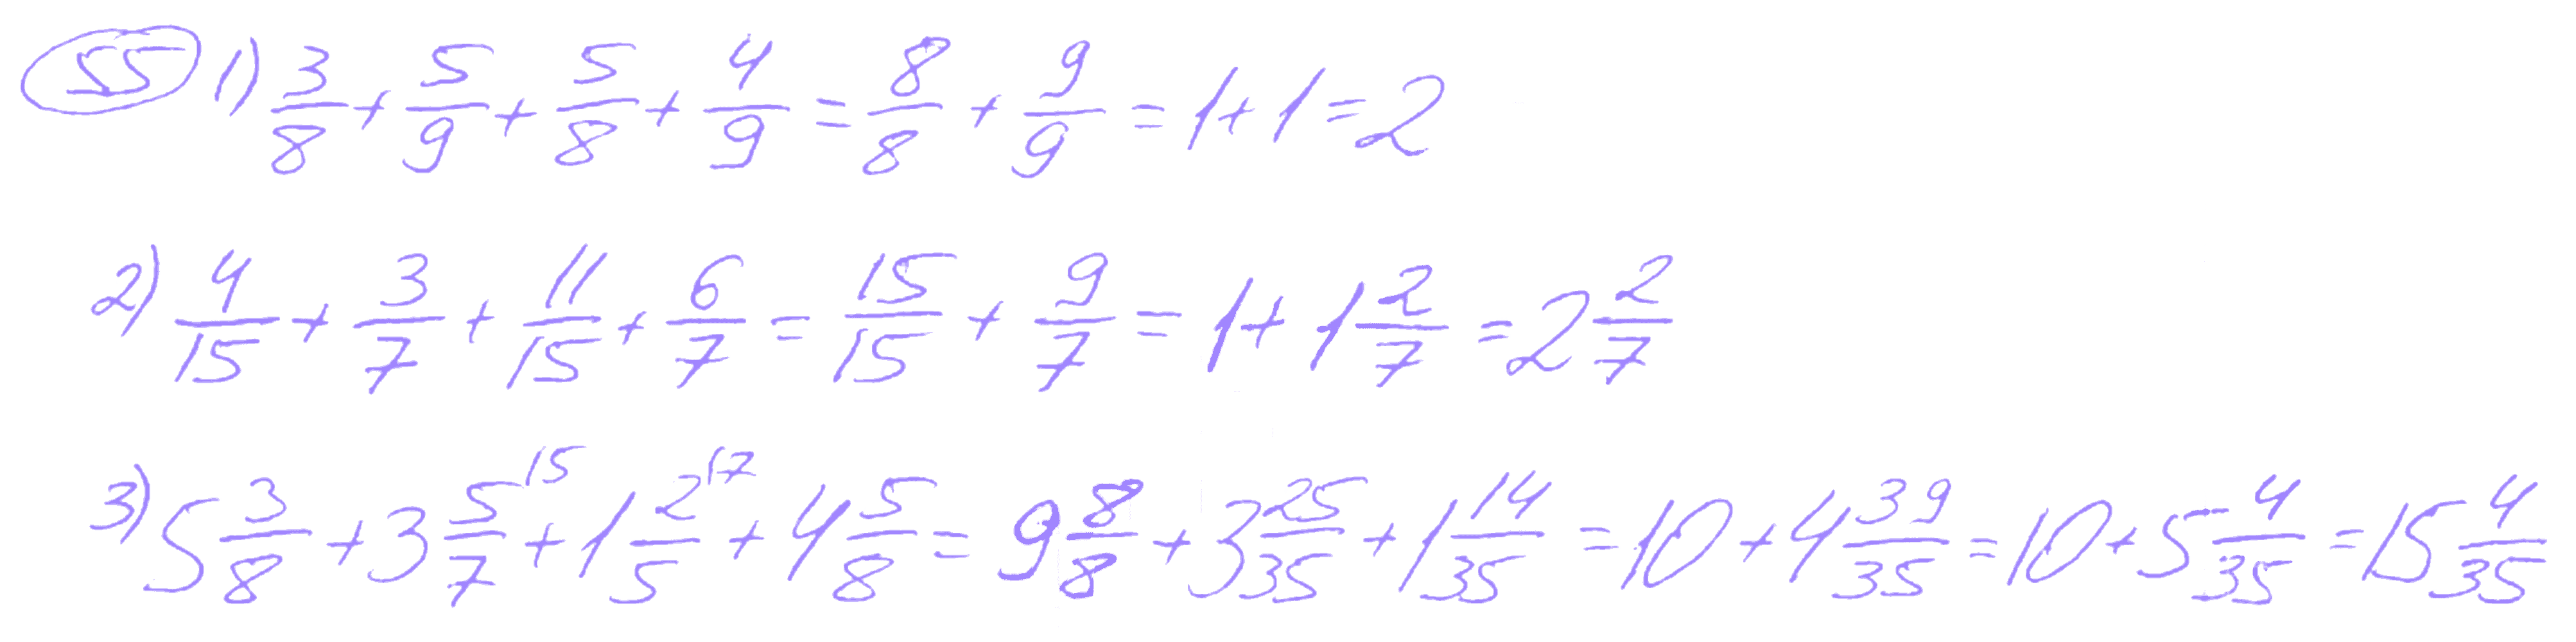 55 1) 3/8 + 5/9 + 5/8 + 4/9 = 8/8 + 9/9 = 1 + 1 = 2
2) 4/15 + 3/7 + 11/15 + 6/7 = 15/15 + 9/7 = 1 + 1 2/7 = 2 2/7
3) 5 3/8 + 3 5/7^15 + 1 2/5^17 + 4 5/8 = 9 8/8 + 3 25/35 + 1 14/35 = 10 + 4 39/35 = 10 + 5 4/35 = 15 4/35